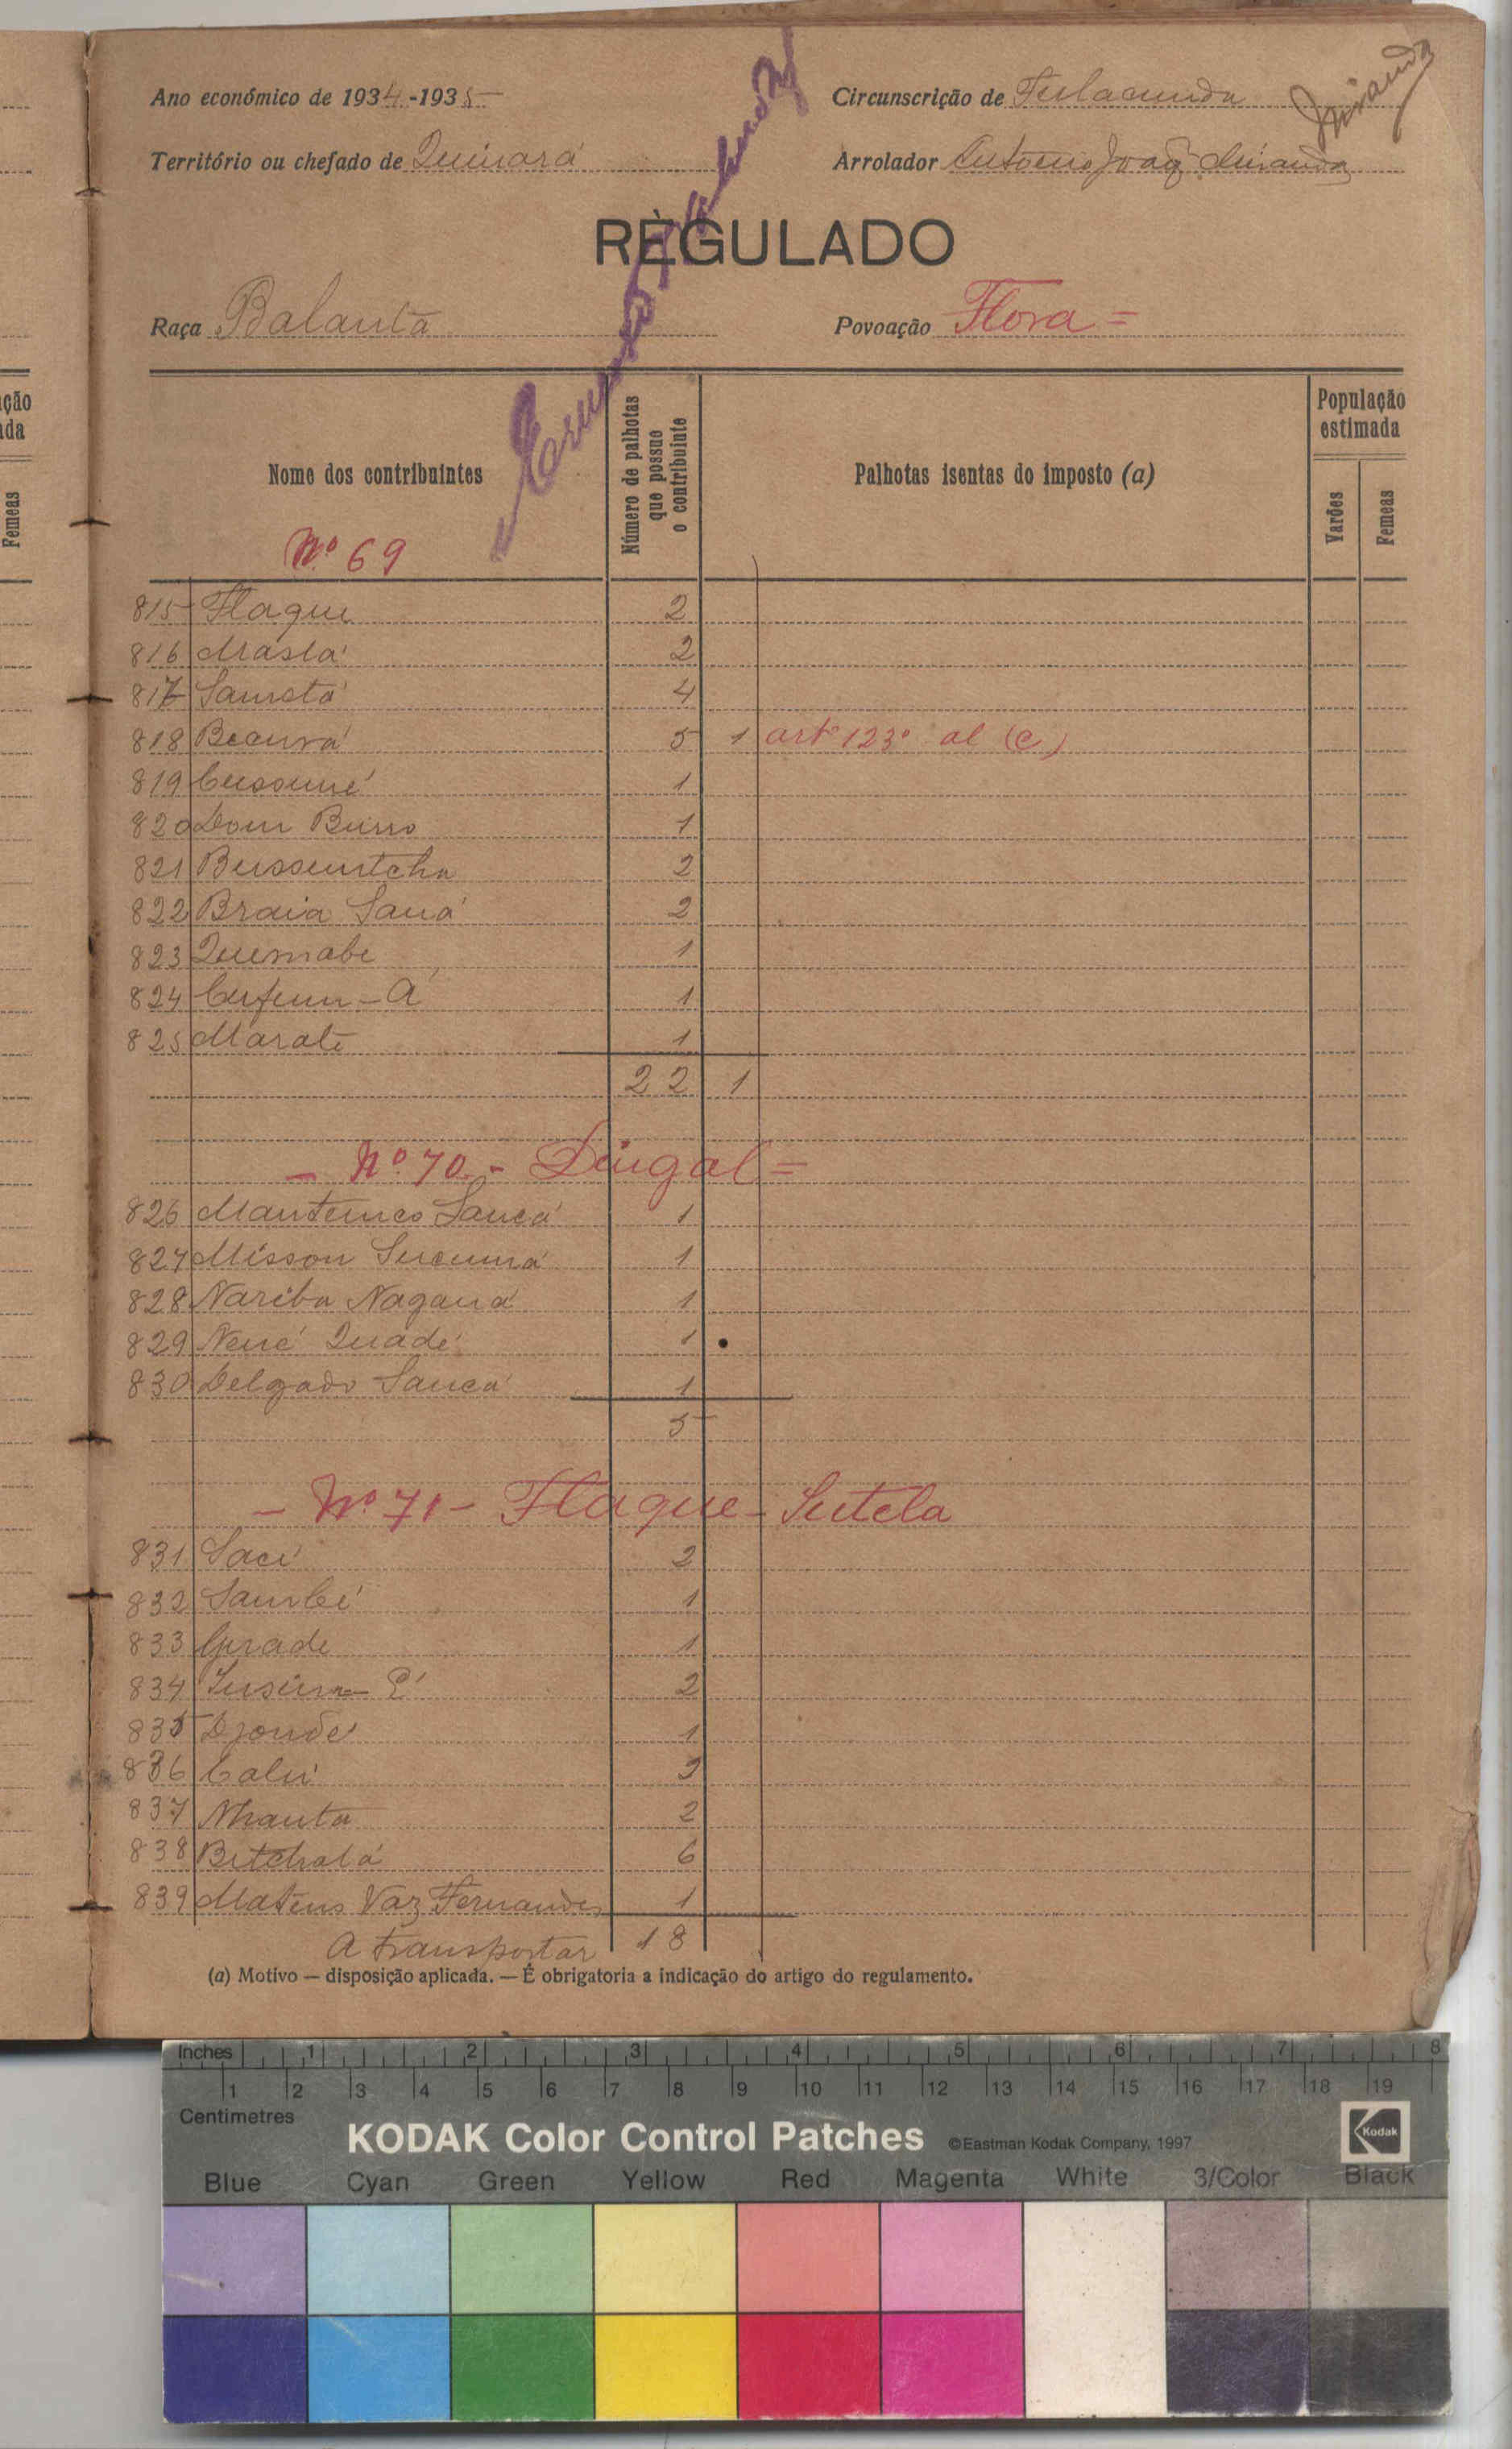 Ano económico de 1934-1935
Circunscrição de Fulacunda
Miranda
Território ou chefado de Quinará
Arrolador António Joaq Miranda
REGULADO
Raça Balanta
Povoação Flora =
ção
da
Femeas
Nome dos contribuintes
Número de palhotas que possue o contribuinte
Palhotas isentas do imposto (a)
População estimada
Varões
Femeas
Nº 69
815 Flaque 2
816 Masla' 2
817 4
818 Becurá 5 1 artº 123º al (c)
819 Cussuné 1
820 Dom Burro 1
821 Bussuntcha 2
822 Braia Saná 2
823 Quemabe 1
824 Cufunn-A 1
825 Marate 1
22 1
- Nº 70 - Dingal =
826 Sanca' 1
827 Misson 1
828 Nariba Nagana' 1
829 Nené Quadé 1
830 Delgado Sanca' 1
5
- Nº 71 - Flaque - Sutela
831 Saci' 2
832 Sambé 1
833 1
834 2
835 Djondé 1
836 Calú
837 Nhanta 2
838 Bitchalá 6
839 Mateus Vaz Fernandes 1
A transportar 18
(a) Motivo — disposição aplicada. — É obrigatoria a indicação do artigo do regulamento.
Inches 1 2 3 4 5 6 7 8
1 2 3 4 5 6 7 8 9 10 11 12 13 14 15 16 17 18 19
Centimetres
KODAK Color Control Patches ©Eastman Kodak Company, 1997 Kodak
Blue Cyan Green Yellow Red Magenta White 3/Color Black